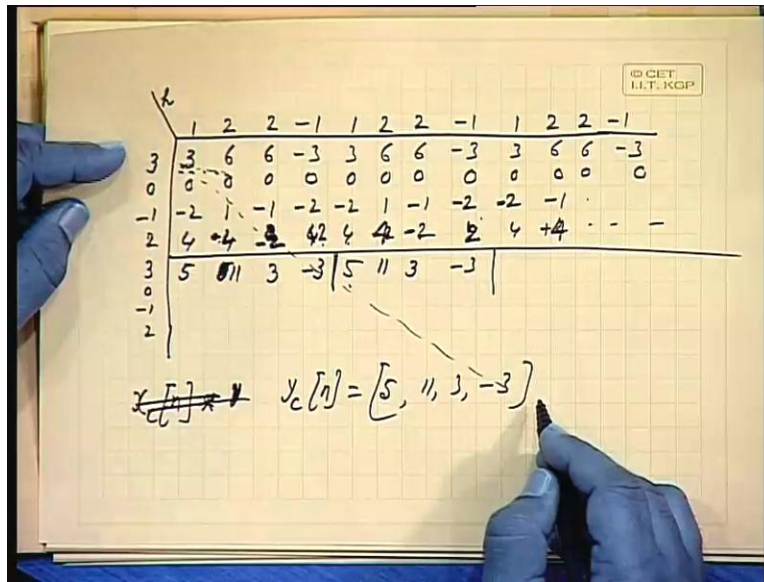 © CET
I.I.T. KGP
h
1 2 2 -1 1 2 2 -1 1 2 2 -1
3 3 6 6 -3 3 6 6 -3 3 6 6 -3
0 0 0 0 0 0 0 0 0 0 0 0 0
-1 -2 1 -1 -2 -2 1 -1 -2 -2 -1
2 4 4 -2 2 4 4 -2 2 4 +4 -- -
3 5 11 3 -3 5 11 3 -3
0
-1
2
y_c[n] = [5, 11, 3, -3]